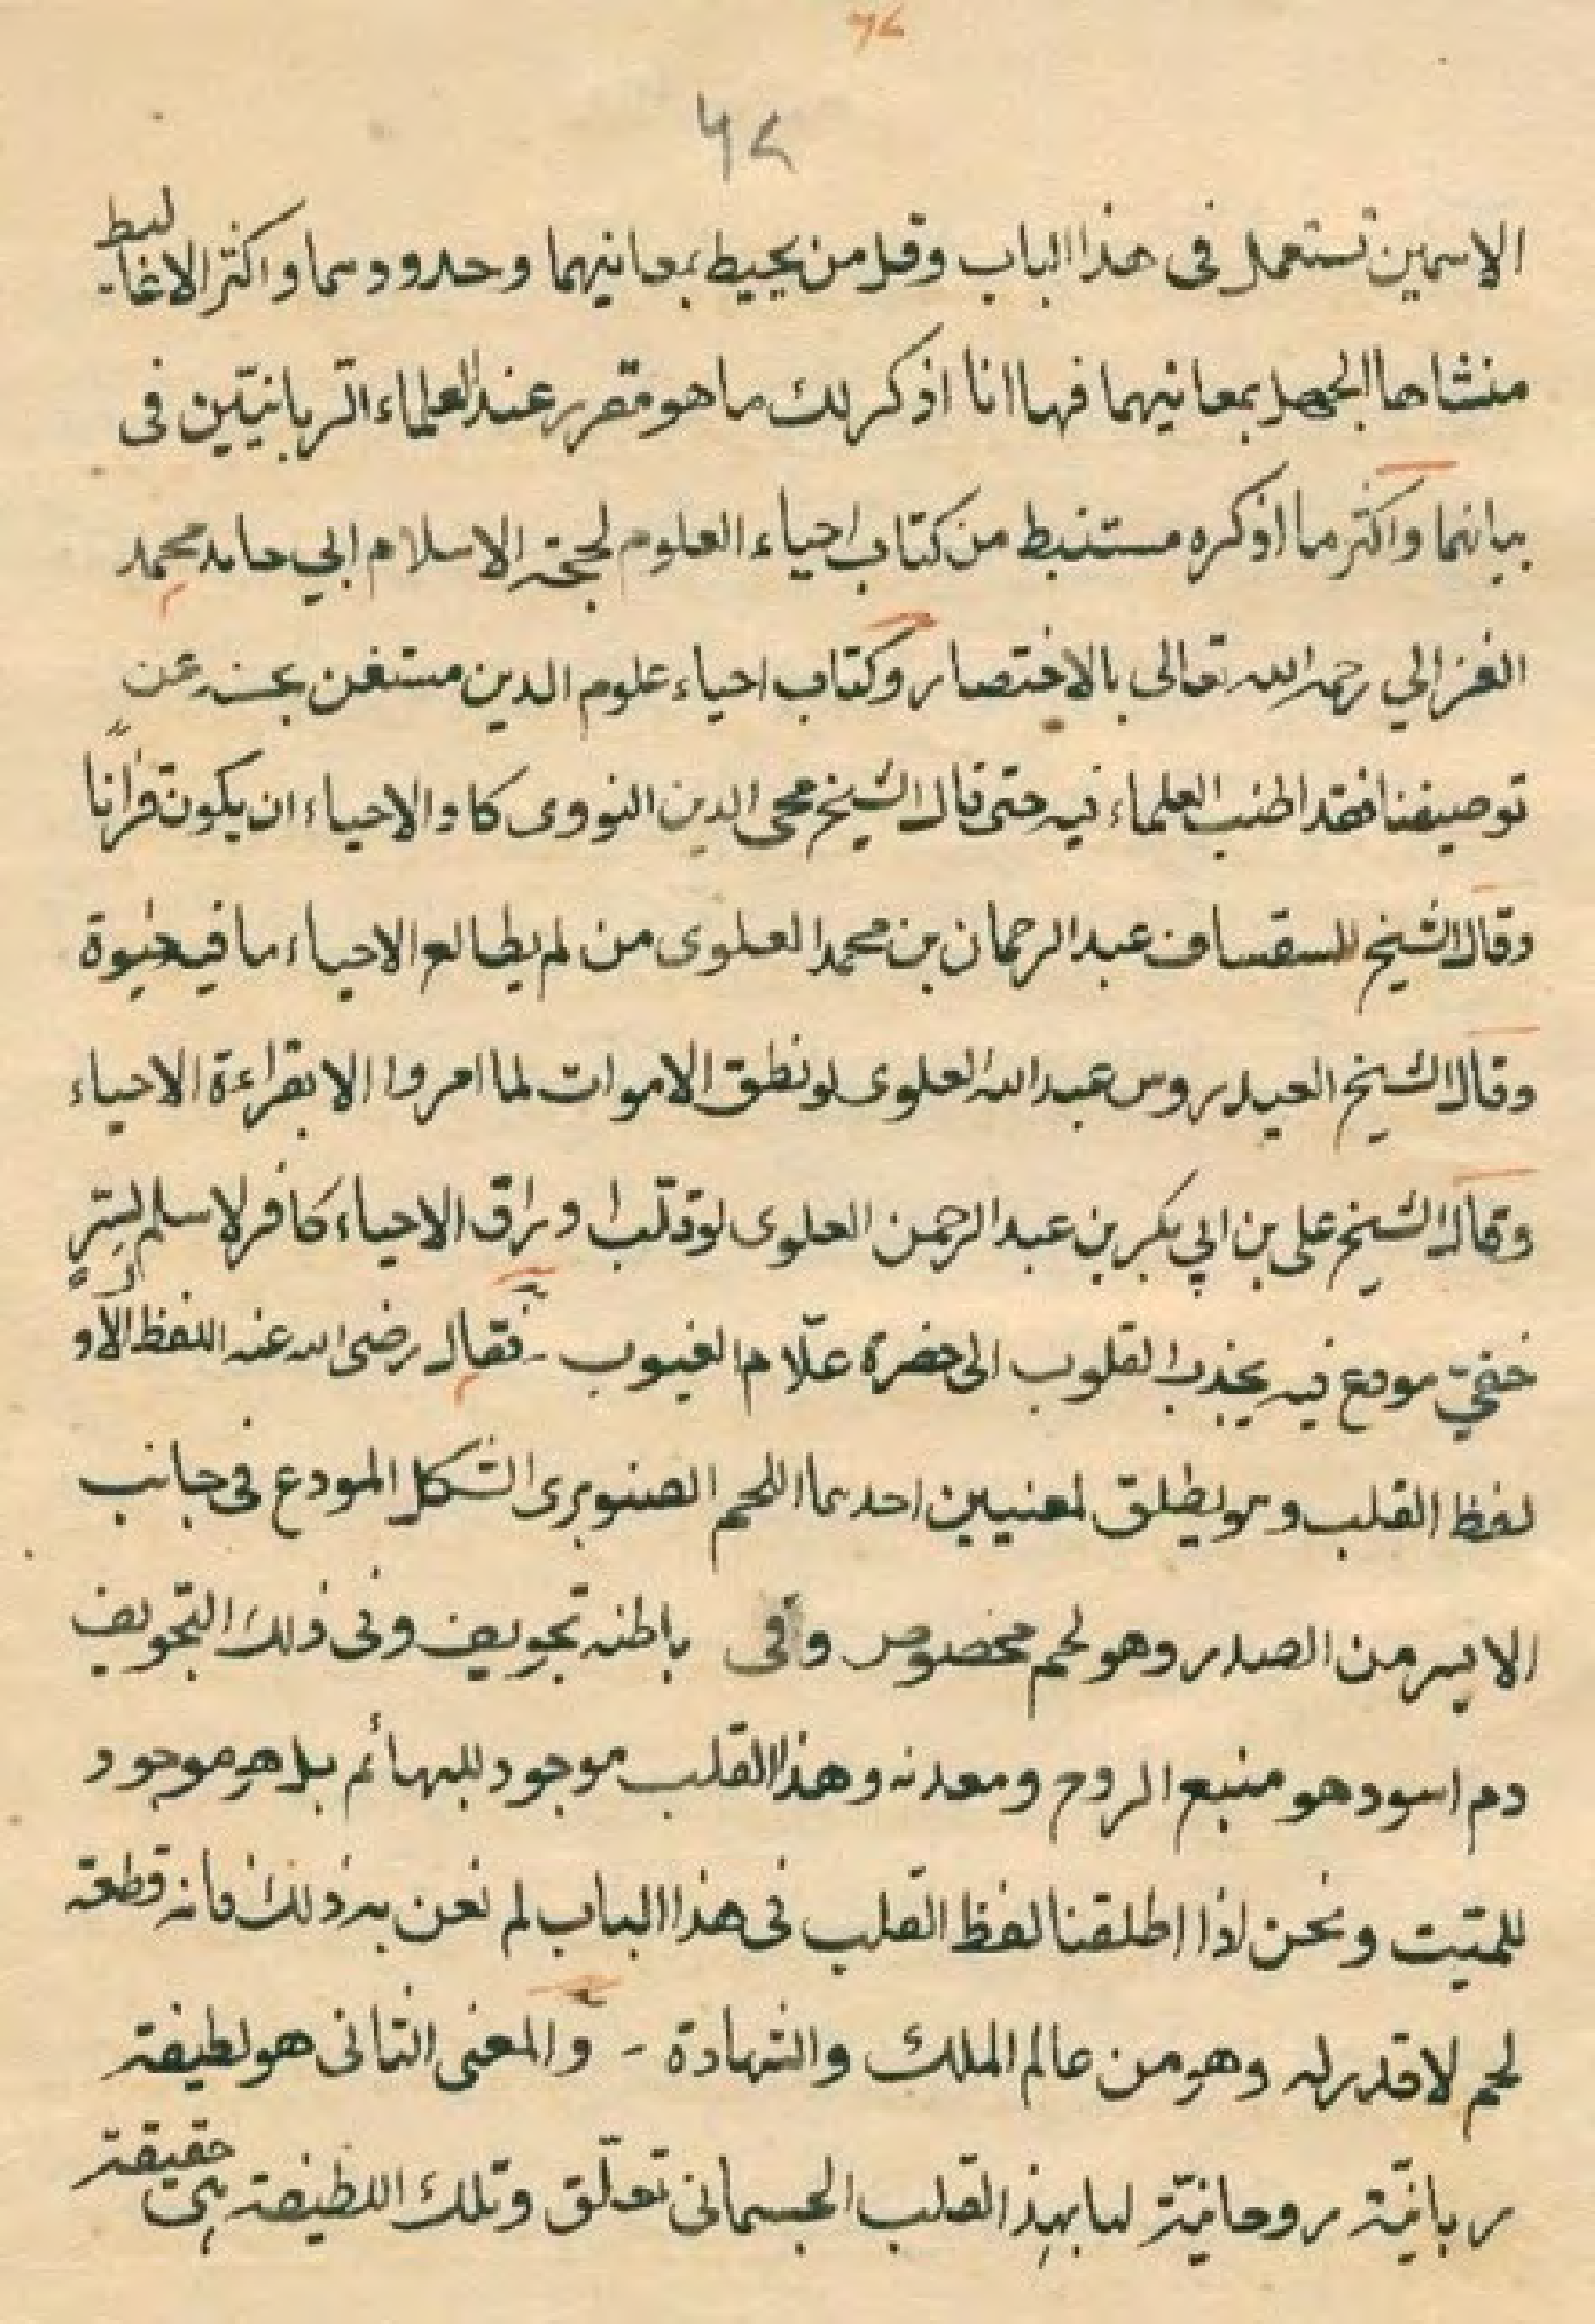 ٦٨
٦٨
الاسمين تستعمل فى هذا الباب وقل من يحيط بمعانيهما وحدودهما واكثر الاغاليط
منشاها الجهل بمعانيهما فها انا اذكر لك ما هو مقرر عند العلماء الربانيّين فى
بيانهما واكثر ما اذكره مستنبط من كتاب احياء العلوم لحجة الاسلام ابي حامد محمد
الغزالي رحمه الله تعالى بالاختصار وكتاب احياء علوم الدين مستغن بحسنه عن
توصيفنا فقد اطنب العلماء فيه حتى قال الشيخ محى الدين النووى كاد الاحياء ان يكون قرآنًا
وقال الشيخ السقساف عبد الرحمان بن محمد العلوى من لم يطالع الاحياء ما فيه حيوة
وقال الشيخ العيدروس عبد الله العلوى لو نطق الاموات لما امروا الا بقراءة الاحياء
وقال الشيخ على بن ابي بكر بن عبد الرحمن العلوى لو قلّب اوراق الاحياء كافر لاسلم لسِرٍّ
خفيّ مودع فيه يجذب القلوب الى حضرة علّام الغيوب - فقال رضى الله عنه اللفظ الاوّل
لفظ القلب وهو يطلق لمعنيين احدهما اللحم الصنوبرى الشكل المودع فى جانب
الايسر من الصدر وهو لحم مخصوص وفى باطنه تجويف وفى ذلك التجويف
دم اسود هو منبع الروح ومعدنه وهذا القلب موجود للبهائم بل هو موجود
للميّت ونحن اذا اطلقنا لفظ القلب فى هذا الباب لم نعن به ذلك فانه قطعة
لحم لا قدر له وهو من عالم الملك والشهادة - والمعنى الثانى هو لطيفة
ربانيّة روحانيّة لها بهذا القلب الجسمانى تعلّق وتلك اللطيفة هى حقيقة